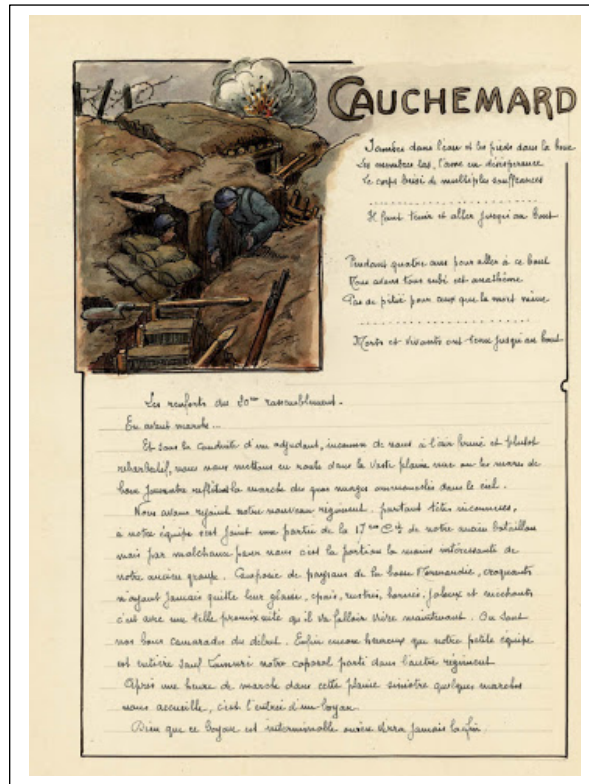 CAUCHEMARD
Jambes dans l'eau et les pieds dans la boue
Les membres las, l'âme en désespérance
Le corps brisé de multiples souffrances
Il faut tenir et aller jusqu'au bout
Pendant quatre ans pour aller à ce bout
Nous avons tous subi cet anathème
Pas de pitié pour ceux que la mort même
Morts et vivants ont tenu jusqu'au bout
Les renforts du 20me rassemblement.
En avant marche...
Et sous la conduite d'un adjudant, inconnu de nous à l'air fermé et plutot
rébarbatif, nous nous mettons en route dans la vaste plaine nue ou les mares de
boue jaunatre reflètent la marche des gros nuages amoncelés dans le ciel.
Nous avons rejoint notre nouveau régiment. partout têtes inconnues,
a notre équipe s'est joint une partie de la 17me Cie de notre ancien bataillon
mais par malchance pour nous c'est la portion la moins intéressante de
notre ancien groupe. Composée de paysans de la basse Normandie, croquants
n'ayant jamais quitté leur glaise, épais, rustres, bornés, jaloux et méchants
c'est avec une telle promiscuité qu'il va falloir vivre maintenant. Ou sont
nos bons camarades du début. Enfin encore heureux que notre petite équipe
est entière sauf notre caporal parti dans l'autre régiment
Après une heure de marche dans cette plaine sinistre quelques marches
nous accueille, c'est l'entrée d'un boyau.
Dieu que ce boyau est interminable verra jamais la fin.